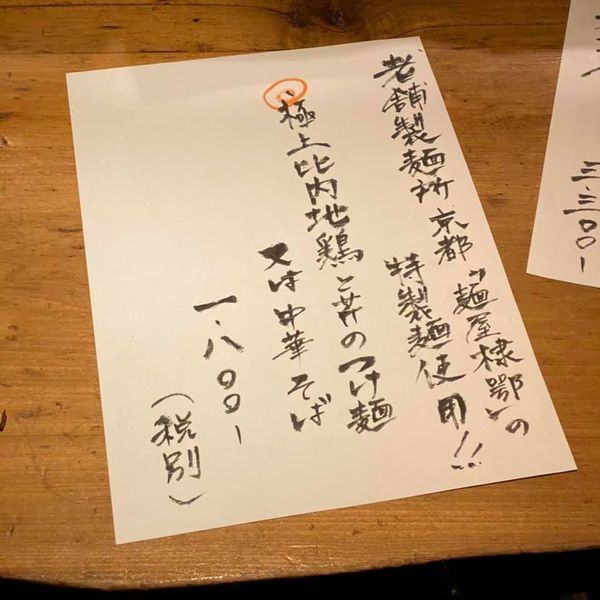 老舗製麺所 京都「麺屋棣鄂」の
特製麺使用!!
極上比内地鶏と芹のつけ麺
又は中華そば
一.八〇〇-
(税別)
三.三〇〇-